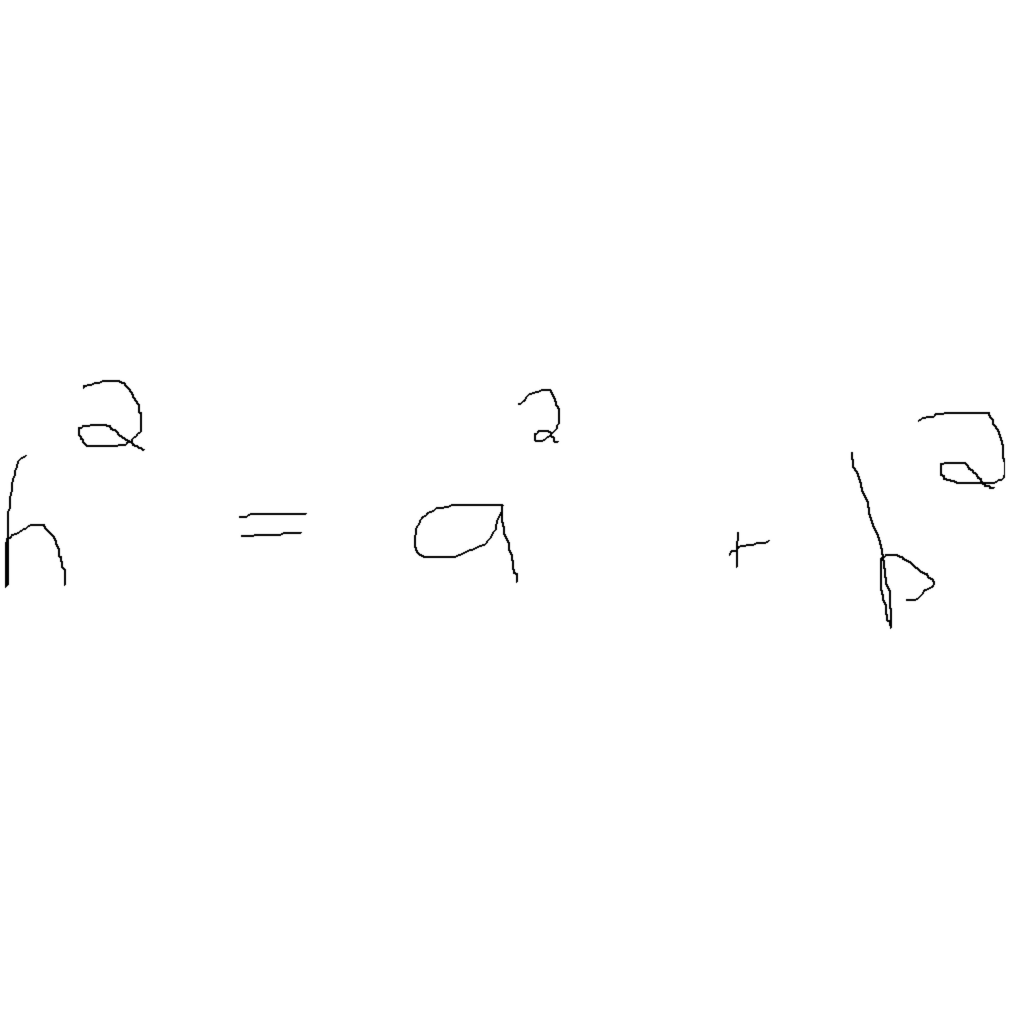 h² = a² + b²